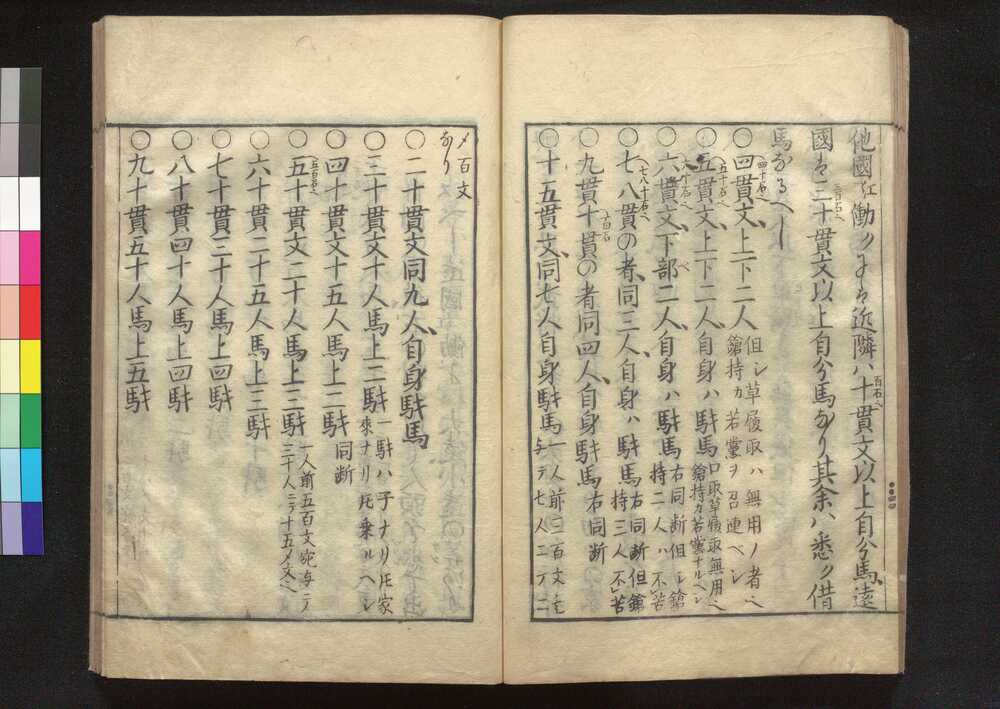 他國江働クニハ近隣ハ十貫文以上自分馬遠
國ハ三十貫文以上自分馬なり其余ハ悉ク借
馬なるへし
○四貫文上下二人但シ草履取ハ無用ノ者ヘ
鎗持カ若黨ヲ召連ベシ
○五貫文上下二人自身ハ駄馬口取草履取無用ヘ
鎗持カ若黨ナルヘシ
○六貫文下部二人自身ハ駄馬右同断但シ鎗
持二人ハ不苦
○七八貫の者同三人自身ハ駄馬右同断但鎗
持三人不苦
○九貫十貫の者同四人自身駄馬右同断
○十五貫文同七人自身駄馬一人前三百文宛
与テ七人ニテ二
〆百文
なり
○二十貫文同九人自身駄馬
○三十貫文十人馬上二駄一駄ハ子ナリ圧家
來ナリ圧乗ルヘシ
○四十貫文十五人馬上二駄同断
○五十貫文二十人馬上三駄一人前五百文宛与テ
三十人ニテ十五〆文ヘ
○六十貫二十五人馬上三駄
○七十貫三十人馬上四駄
○八十貫四十人馬上四駄
○九十貫五十人馬上五駄